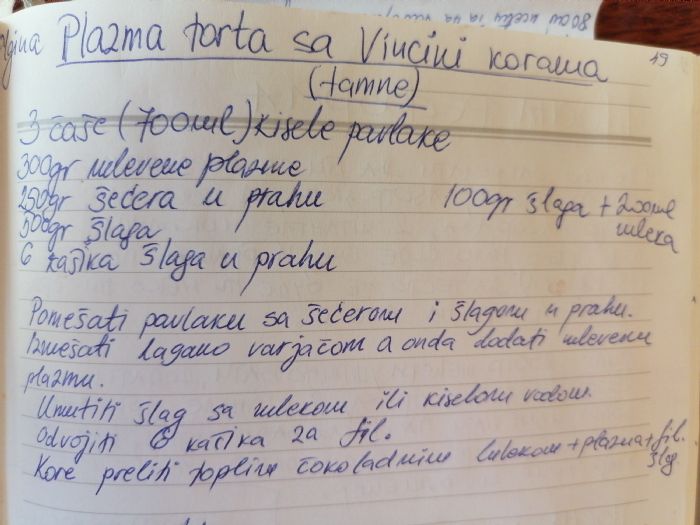 Plazma torta sa Vincini korama
19
(tamne)
3 čaše (700ml) kisele pavlake
300gr mlevene plazme
250gr šećera u prahu
100gr šlaga + 200ml mleka
500gr šlaga
6 kašika šlaga u prahu
Pomešati pavlaku sa šećerom i šlagom u prahu.
Izmešati lagano varjačom a onda dodati mlevenu
plazmu.
Umutiti šlag sa mlekom ili kiselom vodom.
Odvojiti 6 kašika za fil.
Kore preliti toplim čokoladnim mlekom + plazma + fil.
šlag